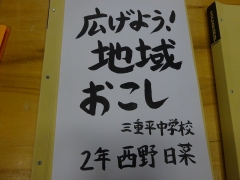 広げよう!
地域
おこし
三重平中学校
2年 西野 日菜